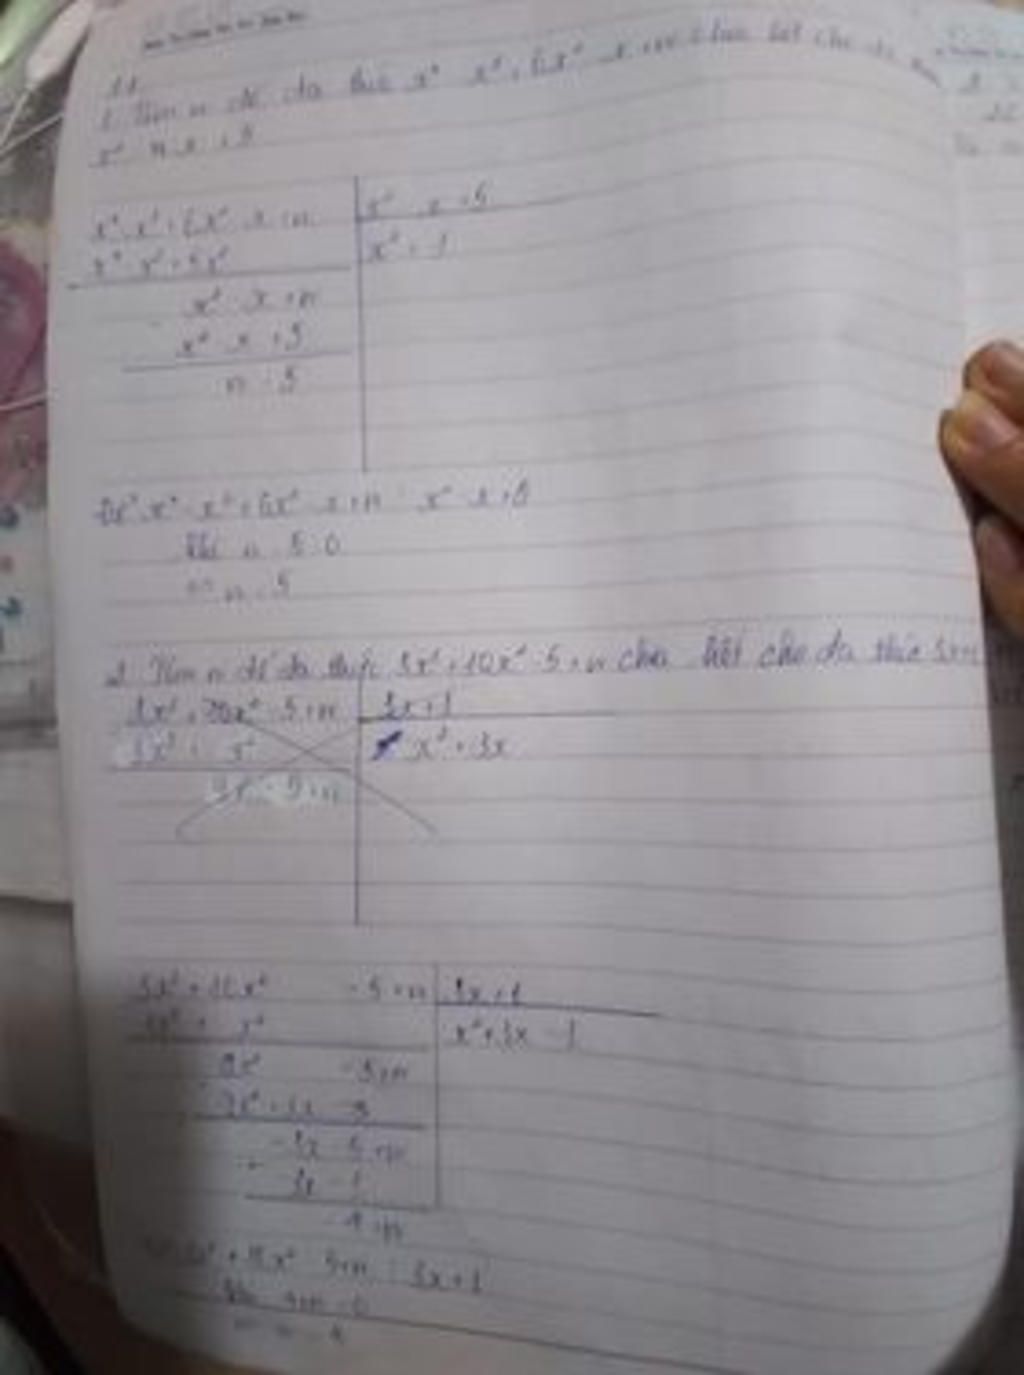 1. Tìm n để đa thức x⁴ - x³ + 6x² - x + n chia hết cho đa
x² - x + 5
x⁴ - x³ + 6x² - x + n | x² - x + 5
x⁴ - x³ + 5x² | x² + 1
x² - x + n
x² - x + 5
n - 5
Để x⁴ - x³ + 6x² - x + n : x² - x + 5
thì n - 5 = 0
n = 5
2. Tìm n để đa thức 3x³ + 10x² - 5 + n chia hết cho đa thức 3x+1
3x³ + 10x² - 5 + n | 3x + 1
3x³ + x² | x² + 3x
9x² - 5 + n
3x³ + 10x² - 5 + n | 3x + 1
3x³ + x² | x² + 3x - 1
9x² - 5 + n
9x² + 3x
- 3x - 5 + n
- 3x - 1
- 4 + n
3x³ + 10x² - 5 + n : 3x + 1